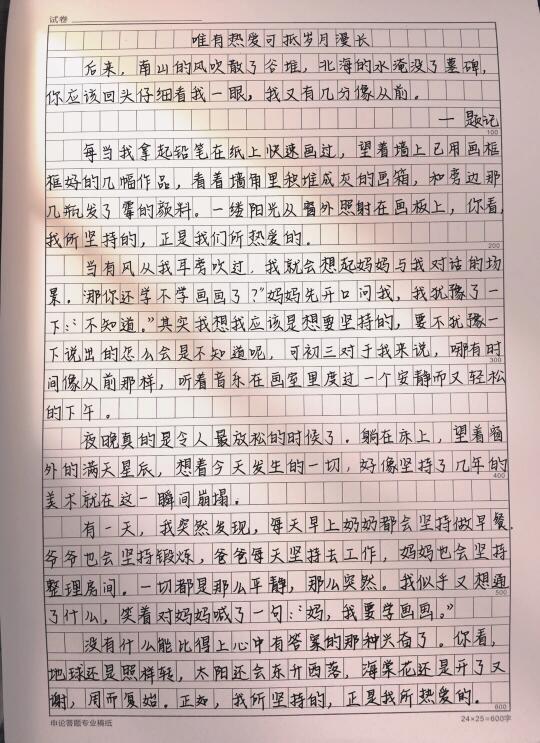 试卷
唯有热爱可抵岁月漫长
后来，南山的风吹散了谷堆，北海的水淹没了墓碑，
你应该回头仔细看我一眼，我又有几分像从前。
— 题记
100
每当我拿起铅笔在纸上快速画过，望着墙上已用画框
框好的几幅作品，看着墙角里积堆成灰的画箱，和旁边那
几瓶发了霉的颜料。一缕阳光从窗外照射在画板上，你看，
我所坚持的，正是我们所热爱的。
200
当有风从我耳旁吹过，我就会想起妈妈与我对话的场
景。“那你还学不学画画了？”妈妈先开口问我，我犹豫了一
下：“不知道。”其实我想我应该是想要坚持的，要不犹豫一
下说出的怎么会是不知道呢，可初三对于我来说，哪有时
300
间像从前那样，听着音乐在画室里度过一个安静而又轻松
的下午。
夜晚真的是令人最放松的时候了。躺在床上，望着窗
外的满天星辰，想着今天发生的一切，好像坚持了几年的
400
美术就在这一瞬间崩塌。
有一天，我突然发现，每天早上奶奶都会坚持做早餐，
爷爷也会坚持锻炼，爸爸每天坚持去工作，妈妈也会坚持
整理房间。一切都是那么平静，那么突然。我似乎又想通
500
了什么，笑着对妈妈喊了一句：“妈，我要学画画。”
没有什么能比得上心中有答案的那种兴奋了。你看，
地球还是照样转，太阳还会东升西落，海棠花还是开了又
谢，周而复始。正如，我所坚持的，正是我所热爱的。
600
申论答题专业稿纸
24×25=600字